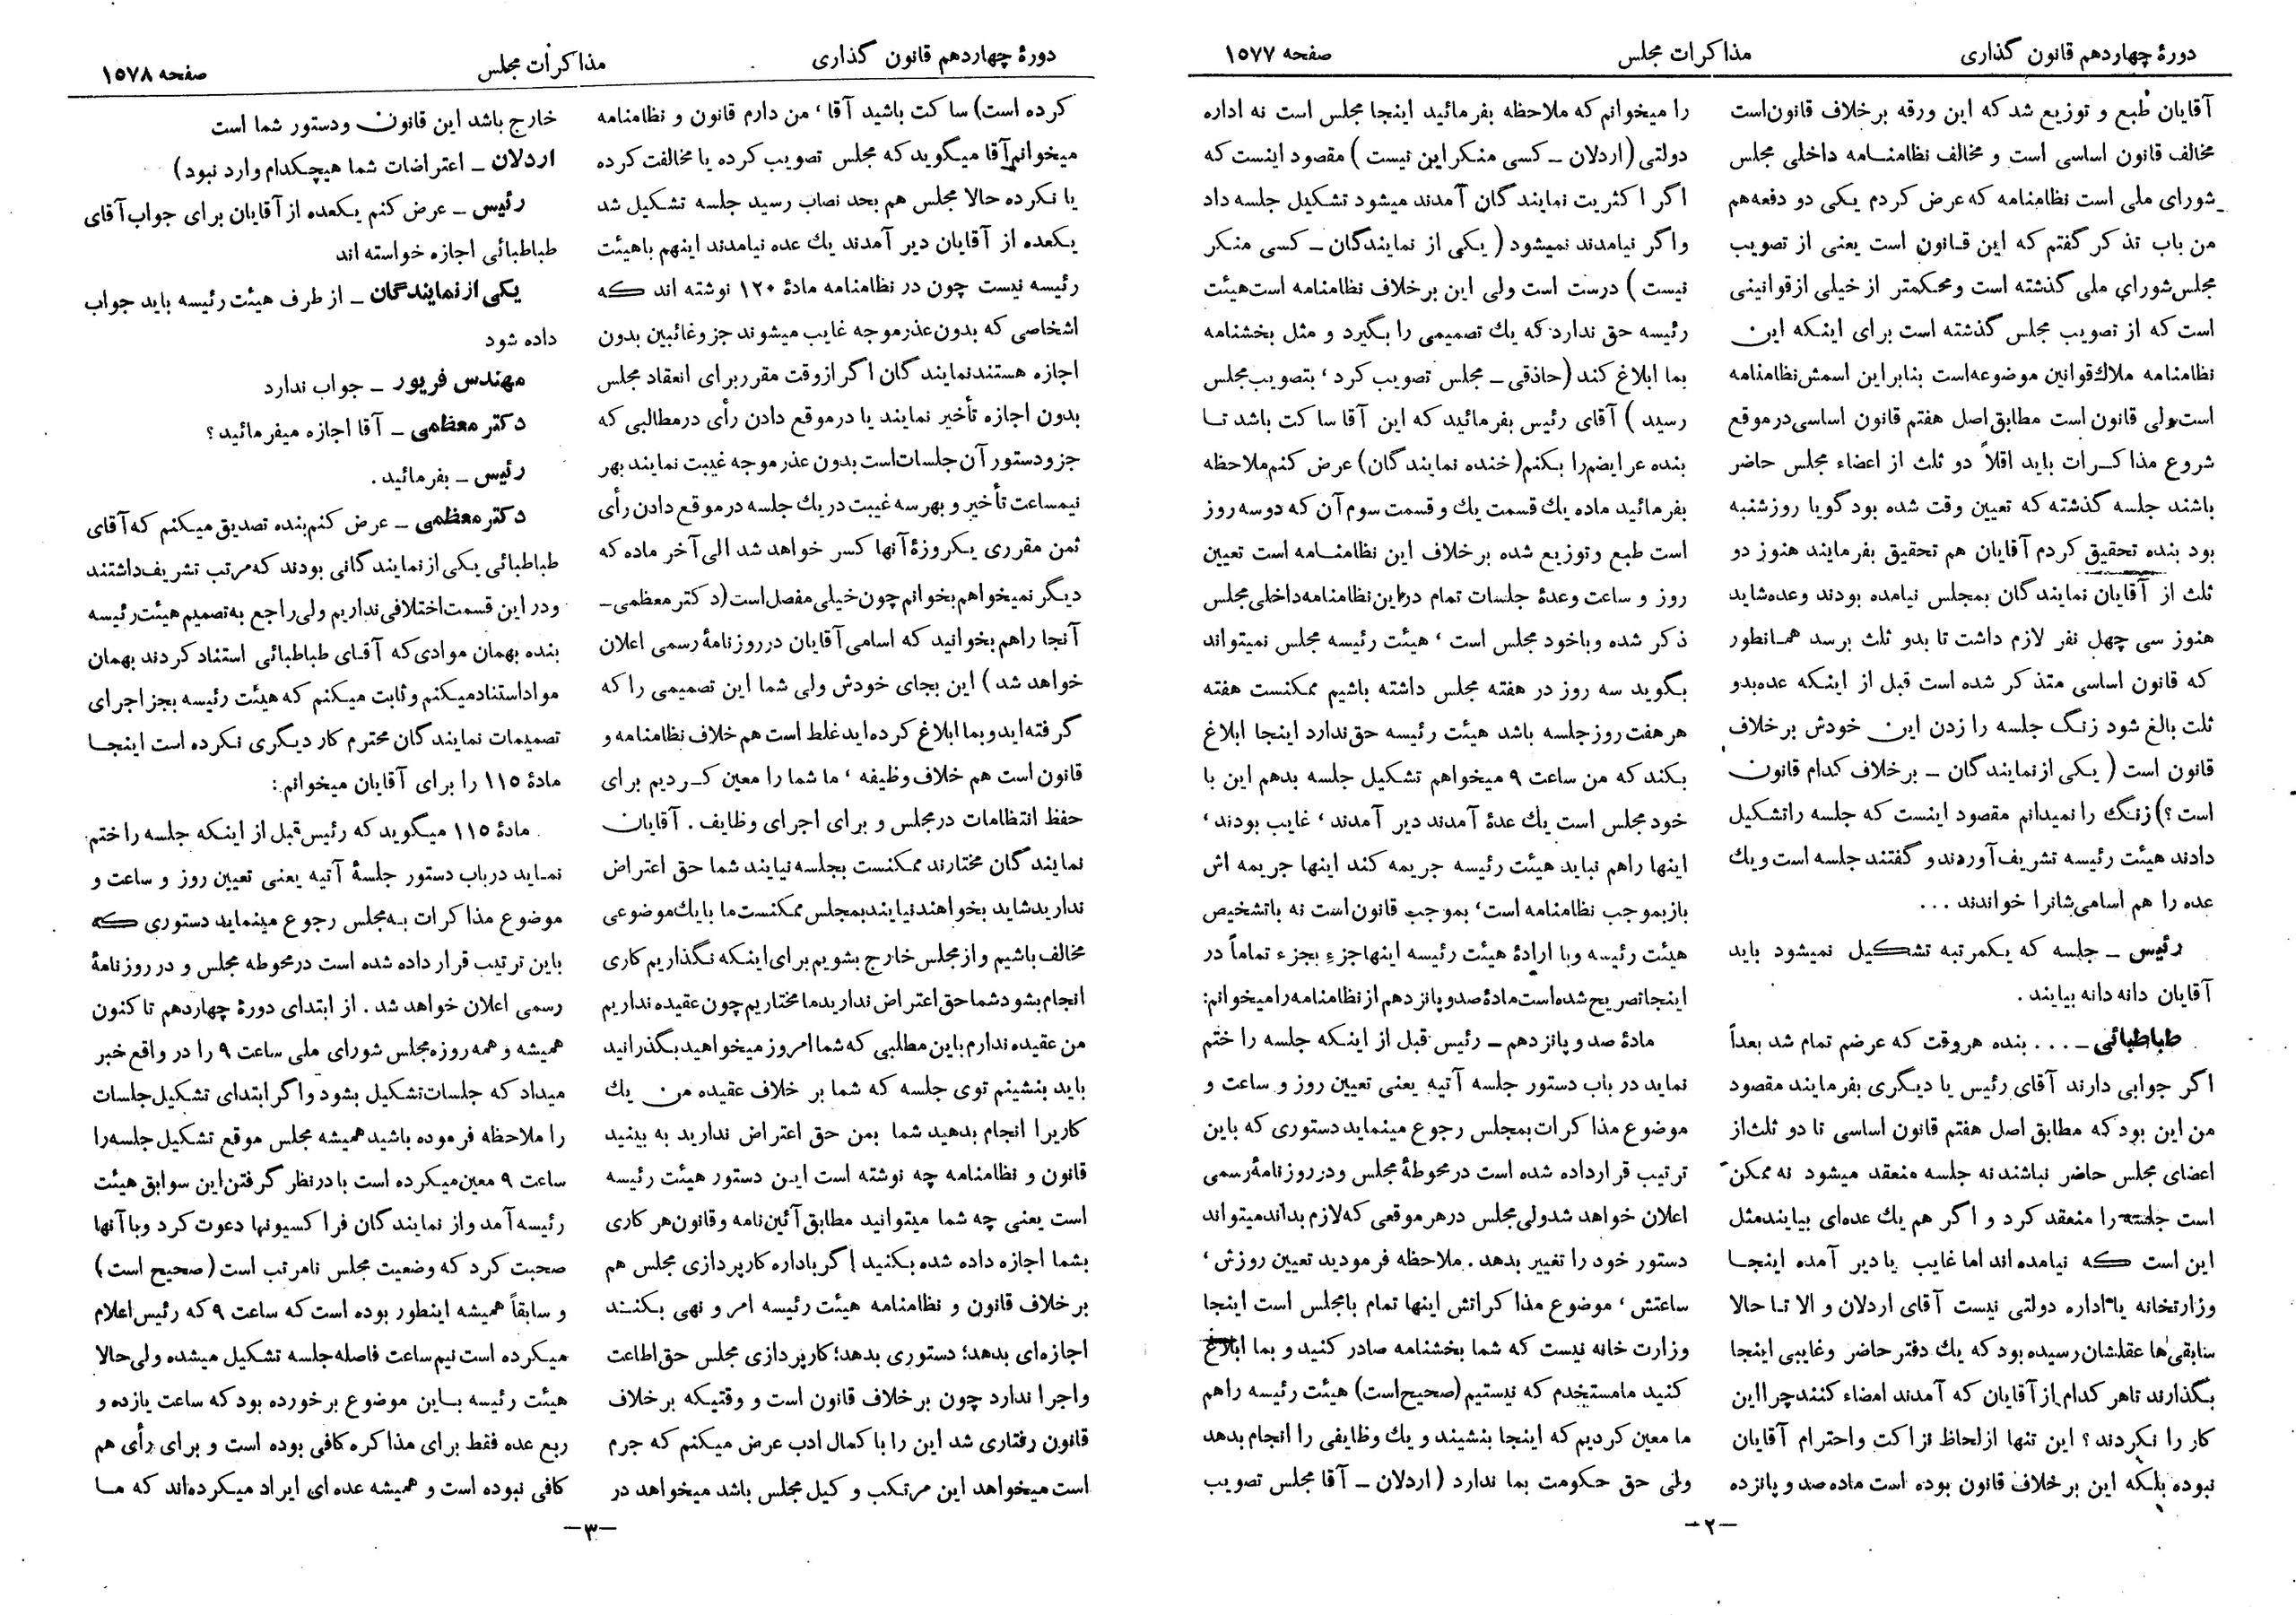 دورهٔ چهاردهم قانون گذاری
مذاکرات مجلس
صفحه ۱۵۷۷
آقایان طبع و توزیع شد که این ورقه برخلاف قانون‌است
مخالف قانون اساسی است و مخالف نظامنـامه داخلی مجلس
شورای ملی است نظامنامه که عرض کردم یکی دو دفعه‌هم
من باب تذکر گفتم که این قـانون است یعنی از تصویب
مجلس‌شورای ملی گذشته است ومحکمتر از خیلی ازقوانینی
است که از تصویب مجلس گذشته است برای اینکه این
نظامنامه ملاک‌قوانین موضوعه‌است بنابراین اسمش‌نظامنامه
است‌ولی قانون است مطابق‌اصل هفتم قانون اساسی‌درموقع
شروع مذاکـرات باید اقلاً دو ثلث از اعضاء مجلس حاضر
باشند جلسه گذشته که تعیین وقت شده بود گویا روزشنبه
بود بنده تحقیق کردم آقایان هم تحقیق بفرمایند هنوز دو
ثلث از آقایان نمایندگان بمجلس نیامده بودند وعده‌شاید
هنوز سی چهل نفر لازم داشت تا بدو ثلث برسد همـانطور
که قانون اساسی متذکر شده است قبل از اینکه عده‌بدو
ثلث بالغ شود زنگ جلسه را زدن این خودش برخلاف
قانون است ( یکی ازنمایندگان ــ برخلاف کدام قانون
است ؟) زنـگ را نمیدانم مقصود اینست که جلسه راتشکیل
دادند هیئت رئیسه تشریف‌آوردند و گفتند جلسه است ویك
عده را هم اسامی‌شانرا خواندند ...
رئیس ــ جلسه که یکمرتبه تشکیل نمیشود باید
آقایان دانه دانه بیایند .
طباطبائی ــ ... بنده هروقت که عرضم تمام شد بعداً
اگر جوابی دارند آقای رئیس یا دیگری بفرمایند مقصود
من این بود که مطابق اصل هفتم قانون اساسی تا دو ثلث‌از
اعضای مجلس حاضر نباشند نه جلسه منعقد میشود نه ممکن
است جلسه را منعقد کرد و اگر هم یك عده‌ای بیایندمثل
این است که نیامده اند اما غایب یا دیر آمده اینجـا
وزارتخانه یا اداره دولتی نیست آقای اردلان و الا تـا حالا
سابقی‌ها عقلشان رسیده بود که یك دفتر حاضر وغایبی اینجا
بگذارند تاهر کدام ازآقایان که آمدند امضاء کنند چرااین
کار را نکردند ؟ این تنها ازلحاظ نزاکت واحترام آقایان
نبوده بلکه این برخلاف قانون بوده است ماده صد و پانزده
را میخوانم که ملاحظه بفرمائید اینجا مجلس است نه اداره
دولتی (اردلان ــ کسی منکر این نیست ) مقصود اینست که
اگر اکثریت نمایندگان آمدند میشود تشکیل جلسه داد
واگر نیامدند نمیشود ( یکی از نمایندگان ــ کسی منکر
نیست ) درست است ولی این برخلاف نظامنامه است‌هیئت
رئیسه حق ندارد که یك تصمیمی را بگیرد و مثل بخشنامه
بما ابلاغ کند (حاذقی ــ مجلس تصویب کرد ، بتصویب‌مجلس
رسید ) آقای رئیس بفرمائید که این آقا ساکت باشد تـا
بنده عرایضم‌را بکنم( خنده نمایندگان) عرض کنم‌ملاحظه
بفرمائید ماده یك قسمت یك وقسمت سوم آن که دوسه روز
است طبع وتوزیع شده برخلاف این نظامنـامه است تعیین
روز و ساعت وعدهٔ جلسات تمام دراین نظامنامه‌داخلی‌مجلس
ذکر شده وباخود مجلس است ، هیئت رئیسه مجلس نمیتواند
بگوید سه روز در هفته مجلس داشته باشیم ممکنست هفته
هرهفت روزجلسه باشد هیئت رئیسه حق‌ندارد اینجا ابلاغ
بکند که من ساعت ۹ میخواهم تشکیل جلسه بدهم این با
خود مجلس است یك عدهٔ آمدند دیر آمدند ، غایب بودند ،
اینها راهم نباید هیئت رئیسه جریمه کند اینها جریمه اش
بازبموجب نظامنامه است، بموجب قانون‌است نه باتشخیص
هیئت رئیسه وبا ارادهٔ هیئت رئیسه اینهاجزءِ بجزء تماماً در
اینجاتصریح‌شده‌است‌مادهٔ‌صدوپانزدهم‌از‌نظامنامه‌رامیخوانم:
مادهٔ صد و پانزدهم ــ رئیس قبل از اینکه جلسه را ختم
نماید در باب دستور جلسه آتیه یعنی تعیین روز و ساعت و
موضوع مذاکرات بمجلس رجوع مینماید دستوری که باین
ترتیب قرارداده شده است درمحوطهٔ مجلس ودرروزنامهٔ‌رسمی
اعلان خواهد شدولی‌مجلس درهرموقعی که‌لازم بداندمیتواند
دستور خود را تغییر بدهد . ملاحظه فرمودید تعیین روزش ،
ساعتش ، موضوع مذاکراتش اینها تمام بامجلس است اینجا
وزارت خانه نیست که شما بخشنامه صادر کنید و بما ابلاغ
کنید مامستخدم که نیستیم (صحیح‌است) هیئت رئیسه راهم
ما معین کردیم که اینجا بنشیند و یك وظایفی را انجام بدهد
ولی حق حکومت بما ندارد ( اردلان ــ آقا مجلس تصویب
ــ۲ــ
دورهٔ چهاردهم قانون گذاری
مذاکرات مجلس
صفحه ۱۵۷۸
کرده است) ساکت باشید آقا ، من دارم قانون و نظامنامه
میخوانم‌آقا میگوید که مجلس تصویب کرده یا مخالفت کرده
یا نکرده حالا مجلس هم بحد نصاب رسید جلسه تشکیل شد
یکعده از آقایان دیر آمدند یك عده نیامدند اینهم باهیئت
رئیسه نیست چون در نظامنامه مادهٔ ۱۲۰ نوشته اند که
اشخاصی که بدون‌عذرموجه غایب میشوند جزوغائبین بدون
اجازه هستند نمایندگان اگرازوقت مقرربرای انعقاد مجلس
بدون اجازه تأخیر نمایند یا درموقع دادن رأی درمطالبی که
جزودستور آن‌جلسات‌است بدون عذرموجه غیبت نمایند بهر
نیمساعت تأخیر و بهرسه غیبت دریك جلسه درموقع دادن رأی
ثمن مقرری یکروزهٔ آنها کسر خواهد شد الی آخر ماده که
دیگر نمیخواهم بخوانم چون‌خیلی مفصل است (دکتر معظمی ــ
آنجا راهم بخوانید که اسامی آقایان درروزنامهٔ رسمی اعلان
خواهد شد ) این بجای خودش ولی شما این تصمیمی را که
گرفته‌ایدوبما ابلاغ کرده‌اید غلط است هم خلاف نظامنامه و
قانون است هم خلاف وظیفه ، ما شما را معین کـردیم برای
حفظ انتظامات درمجلس و برای اجرای وظایف . آقایان
نمایندگان مختارند ممکنست بجلسه نیایند شما حق اعتراض
نداریدشاید بخواهندنیایندبمجلس ممکنست‌ما بایك‌موضوعی
مخالف باشیم وازمجلس خارج بشویم برای‌اینکه نگذاریم کاری
انجام بشودشماحق‌اعتراض نداریدما مختاریم چون‌عقیده نداریم
من عقیده ندارم باین مطلبی که شما امروز میخواهید بگذرانید
باید بنشینم توی جلسه که شما بر خلاف عقیده من یك
کاریرا انجام بدهید شما بمن حق اعتراض ندارید به بینید
قانون و نظامنامه چه نوشته است این دستور هیئت رئیسه
است یعنی چه شما میتوانید مطابق آئین‌نامه وقانون‌هر کاری
بشما اجازه داده شده بکنید اگر باداره کارپردازی مجلس هم
برخلاف قانون و نظامنامه هیئت رئیسه امر و نهی بکنند
اجازه‌ای بدهد؛ دستوری بدهد؛ کارپردازی مجلس حق‌اطاعت
واجرا ندارد چون برخلاف قانون است و وقتیکه برخلاف
قانون رفتاری شد این را با کمال ادب عرض میکنم که جرم
است میخواهد این مرتکب وکیل مجلس باشد میخواهد در
خارج باشد این قانون ودستور شما است
اردلان ــ اعتراضات شما هیچکدام وارد نبود )
رئیس ــ عرض کنم یکعده ازآقایان برای جواب آقای
طباطبائی اجازه خواسته اند
یکی ازنمایندگان ــ از طرف هیئت رئیسه باید جواب
داده شود
مهندس فریور ــ جواب ندارد
دکتر معظمی ــ آقا اجازه میفرمائید ؟
رئیس ــ بفرمائید .
دکترمعظمی ــ عرض کنم‌بنده تصدیق میکنم که آقای
طباطبائی یکی از نمایندگانی بودند که‌مرتب تشریف‌داشتند
ودراین قسمت‌اختلافی نداریم ولی‌راجع به‌تصمیم هیئت‌رئیسه
بنده بهمان موادی‌که آقـای طباطبائی استناد کردند بهمان
مواداستنادمیکنم وثابت میکنم که هیئت رئیسه بجزاجرای
تصمیمات نمایندگان محترم کار دیگری نکرده است اینجـا
مادهٔ ۱۱۵ را برای آقایان میخوانم :
مادهٔ ۱۱۵ میگوید که رئیس‌قبل از اینکه جلسه را ختم
نمـاید درباب دستور جلسهٔ آتیه یعنی تعیین روز و ساعت و
موضوع مذاکرات بـه‌مجلس رجوع مینماید دستوری که
باین ترتیب قرار داده شده است درمحوطه مجلس و در روزنامهٔ
رسمی اعلان خواهد شد . از ابتدای دورهٔ چهاردهم تاکنون
همیشه و همه روزه مجلس شورای ملی ساعت ۹ را در واقع خبر
میداد که جلسات‌تشکیل بشود واگرابتدای تشکیل‌جلسات
را ملاحظه فرموده باشید همیشه مجلس موقع تشکیل جلسه‌را
ساعت ۹ معین‌میکرده است با درنظر گرفتن‌این سوابق هیئت
رئیسه آمد واز نمایندگان فراکسیونها دعوت کرد وبا آنها
صحبت کرد که وضعیت مجلس نامرتب است ( صحیح است )
و سابقاً همیشه اینطور بوده است که ساعت ۹ که رئیس‌اعلام
میکرده است نیم ساعت فاصله جلسه تشکیل میشده ولی‌حالا
هیئت رئیسه بـاین موضوع برخورده بود که ساعت یازده و
ربع عده فقط برای مذاکره کافی بوده است و برای رأی هم
کافی نبوده است و همیشه عده ای ایراد میکرده‌اند که مـا
ــ۳ــ